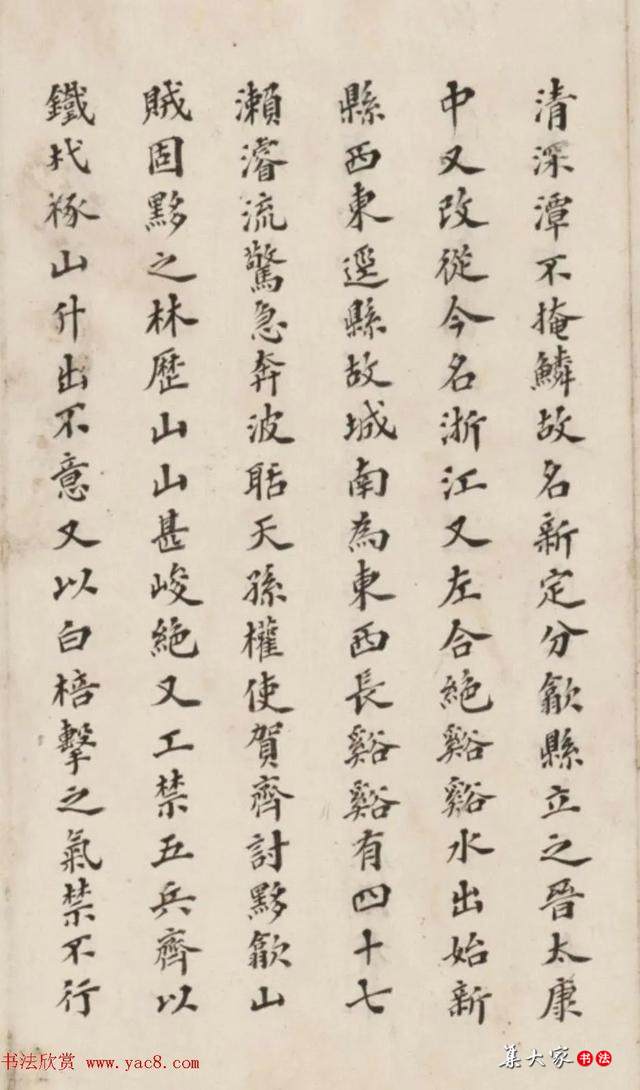 清深潭不掩鱗故名新定分歙縣立之晉太康
中又改從今名浙江又左合絕谿谿水出始新
縣西東逕縣故城南為東西長谿谿有四十七
瀨濬流驚急奔波聒天孫權使賀齊討黟歙山
賊固黟之林歷山山甚峻絕又工禁五兵齊以
鐵杙椓山什出不意又以白棓擊之氣禁不行
书法欣赏 www.yac8.com
集大家书法